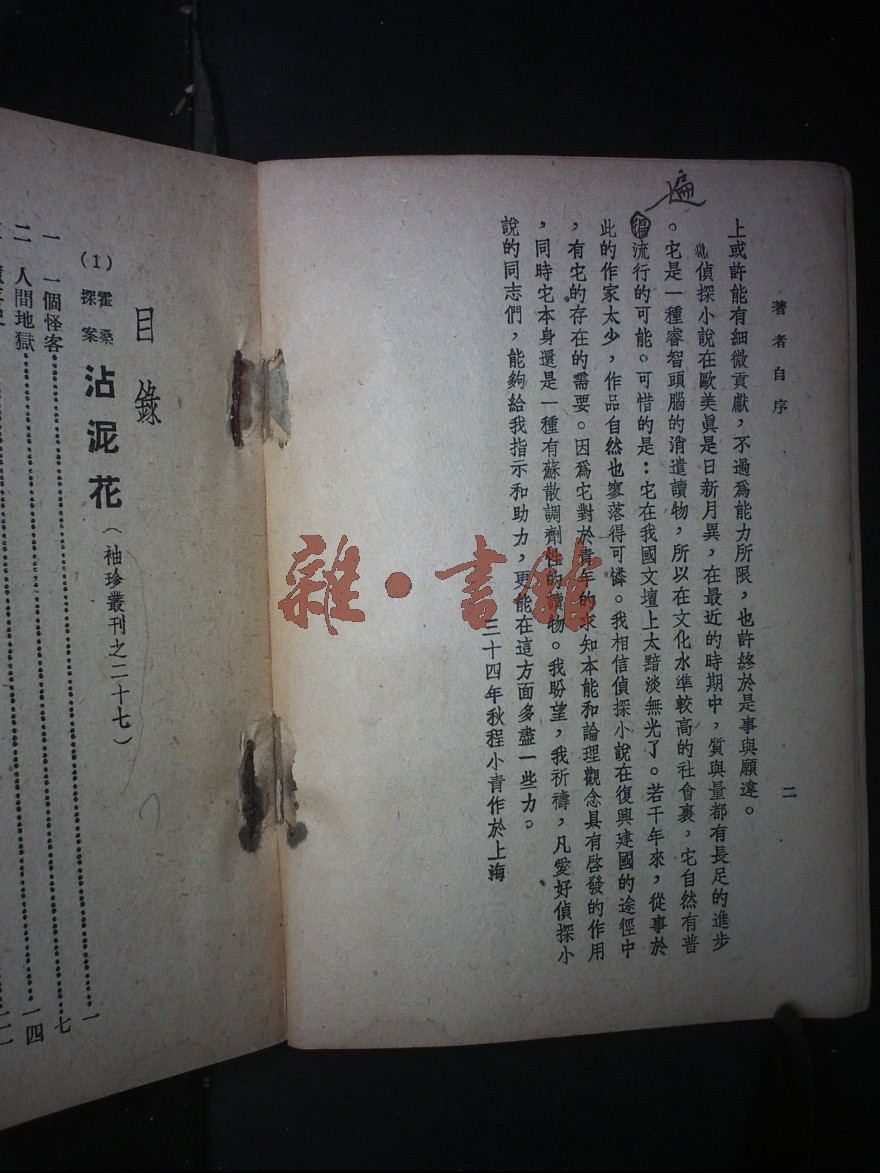 著者自序 二
上或許能有細微貢獻,不過爲能力所限,也許終於是事與願違。
偵探小說在歐美眞是日新月異,在最近的時期中,質與量都有長足的進步
。它是一種睿智頭腦的消遣讀物,所以在文化水準較高的社會裏,它自然有普
遍
徧流行的可能。可惜的是:它在我國文壇上太黯淡無光了。若干年來,從事於
此的作家太少,作品自然也寥落得可憐。我相信偵探小說在復興建國的途徑中
,有它的存在的需要。因爲它對於靑年的求知本能和論理觀念具有啓發的作用
,同時它本身還是一種有蘇散調劑性的讀物。我盼望,我祈禱,凡愛好偵探小
說的同志們,能夠給我指示和助力,更能在這方面多盡一些力。
三十四年秋程小青作於上海
目錄
(1)霍桑探案 沾泥花(袖珍叢刊之二十七)
一 一個怪客……一
二 人間地獄……七
一四
雜·書館